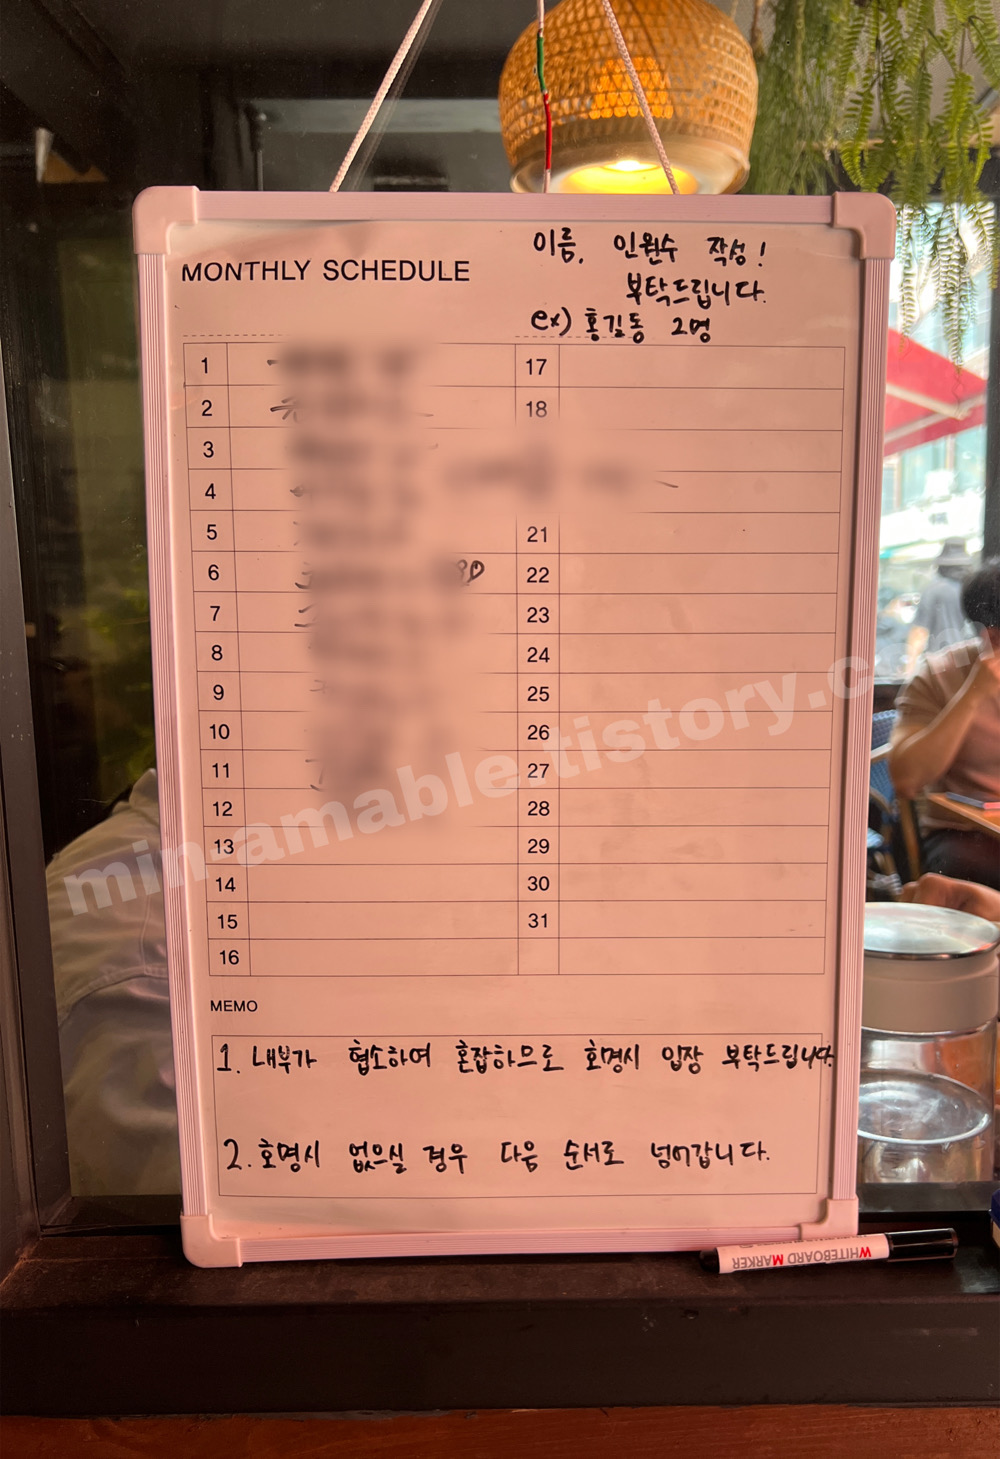 이름, 인원수 작성!
부탁드립니다.
MONTHLY SCHEDULE
ex) 홍길동 2명
1
2
3
4
5
6
7
8
9
10
11
12
13
14
15
16
17
18
21
22
23
24
25
26
27
28
29
30
31
min-amable.tistory.com
MEMO
1. 내부가 협소하여 혼잡하므로 호명시 입장 부탁드립니다.
2. 호명시 없으실 경우 다음 순서로 넘어갑니다.
WHITEBOARD MARKER